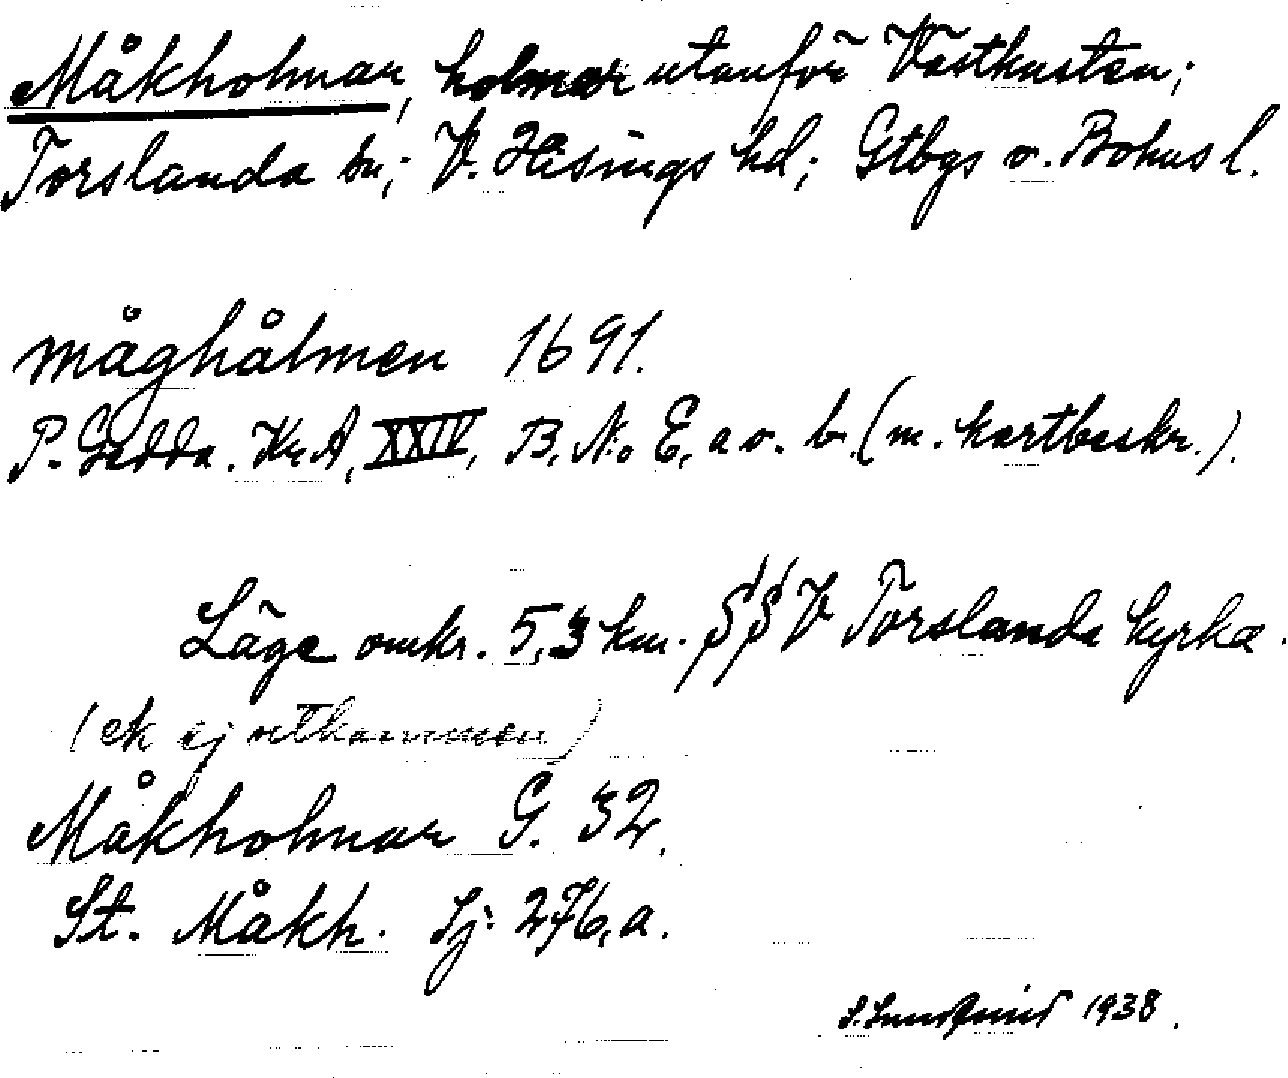 Måkholmar, holmar utanför Västkusten;
Torslanda sn; V. Hisings hd; Gtbgs o. Bohus l.
måghålmen 1691.
P. Gedda. Kr. A, XXIV, B, No E, a o. b (m. kartbeskr.).
Läge omkr. 5,3 km. SSV Torslanda kyrka.
(ek ej utkommen)
Måkholmar G. 32.
St. Måkh. Sj. 276, a.
1938.